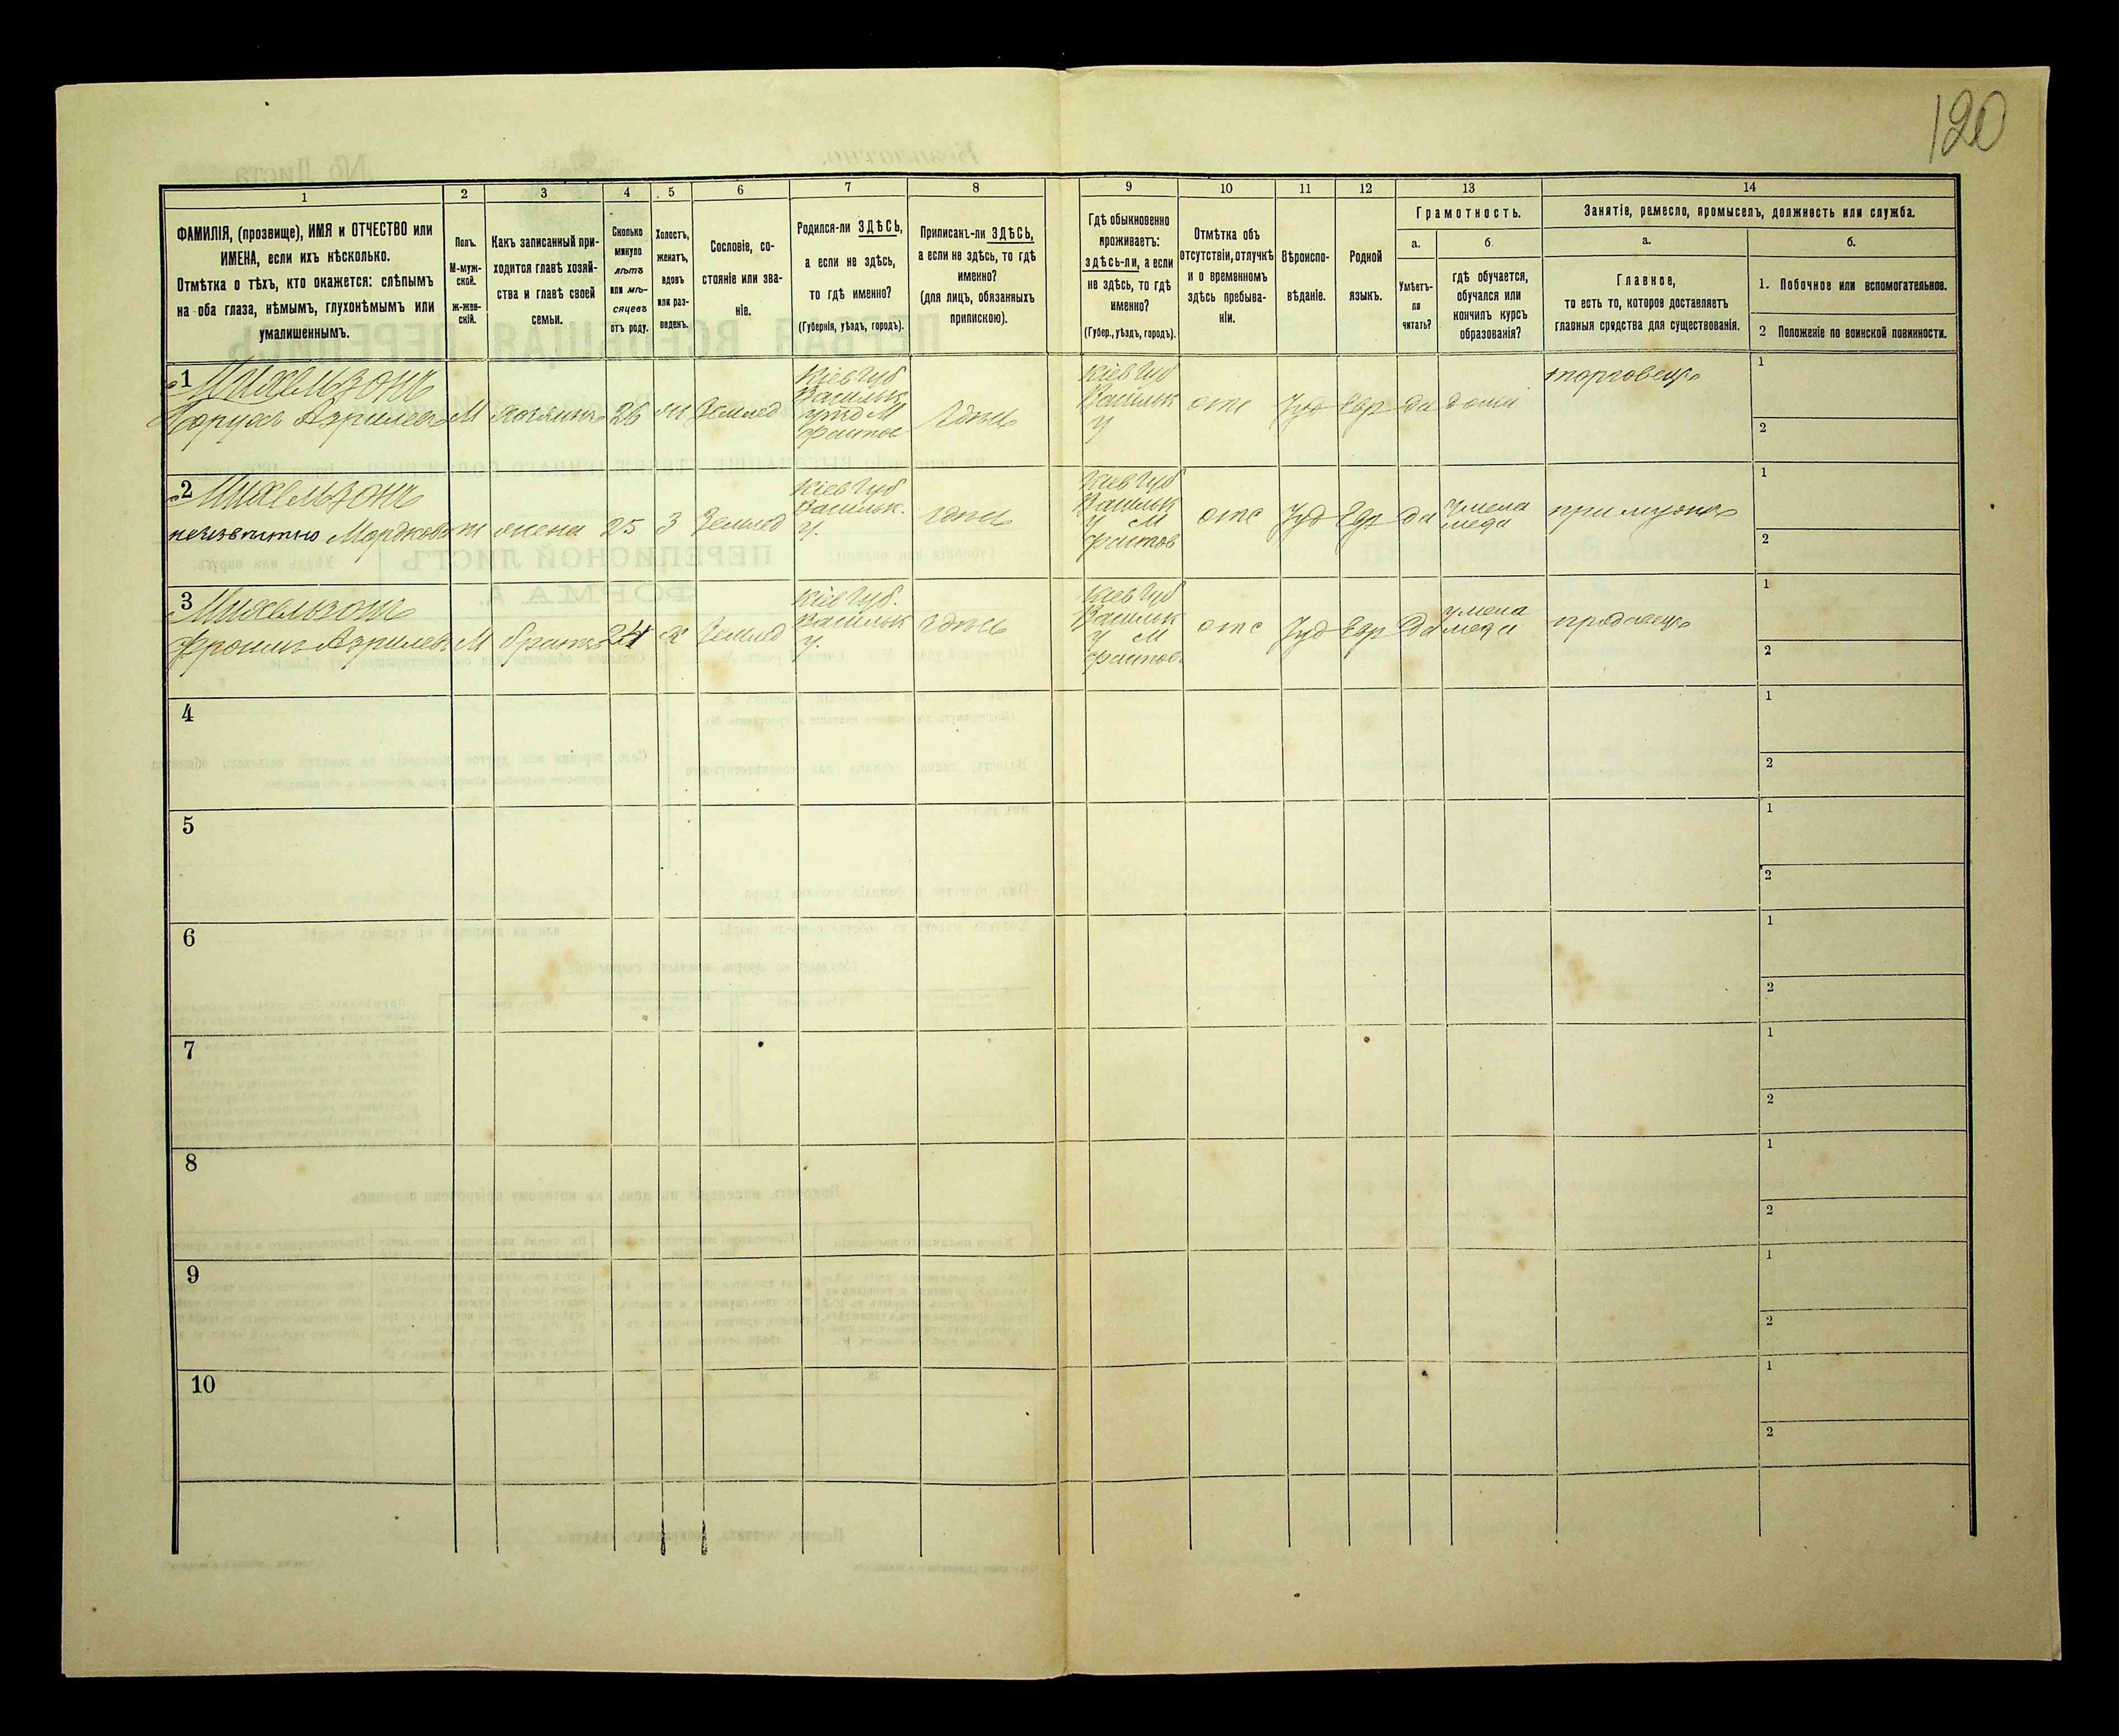 120
1 2 3 4 5 6 7 8 9 10 11 12 13 14
ФАМИЛІЯ, (прозвище), ИМЯ и ОТЧЕСТВО или
ИМЕНА, если ихъ нѣсколько.
Отмѣтка о тѣхъ, кто окажется: слѣпымъ
на оба глаза, нѣмымъ, глухонѣмымъ или
умалишеннымъ.
Полъ.
М-муж-
ской.
Ж-жен-
скій.
Какъ записанный при-
ходится главѣ хозяй-
ства и главѣ своей
семьи.
Сколько
минуло
лѣтъ
или мѣ-
сяцевъ
отъ роду.
Холостъ,
женатъ,
вдовъ
или раз-
веденъ.
Сословіе, со-
стояніе или зва-
ніе.
Родился-ли ЗДѢСЬ,
а если не здѣсь,
то гдѣ именно?
(Губернія, уѣздъ, городъ).
Приписанъ-ли ЗДѢСЬ,
а если не здѣсь, то гдѣ
именно?
(для лицъ, обязанныхъ
припискою).
Гдѣ обыкновенно
проживаетъ:
здѣсь-ли, а если
не здѣсь, то гдѣ
именно?
(Губер., уѣздъ, городъ).
Отмѣтка объ
отсутствіи, отлучкѣ
и о временномъ
здѣсь пребыва-
ніи.
Вѣроиспо-
вѣданіе.
Родной
языкъ.
Грамотность.
а.
Умѣетъ-
ли
читать?
б.
гдѣ обучается,
обучался или
кончилъ курсъ
образованія?
Занятіе, ремесло, промыселъ, должность или служба.
а.
Главное,
то есть то, которое доставляетъ
главныя средства для существованія.
б.
1. Побочное или вспомогательное.
2 Положеніе по воинской повинности.
1 Михельзонъ
Борухъ Азрилевъ
М
хозяинъ
26
ж
Землед
Кіев Губ
Васильк
М
Фастов
здѣсь
Кіев Губ
Васильк
У
отс
Іуд
Евр
да
дома
торговецъ
1
2
2 Михельзонъ
неизвѣстно Мордков
ж
жена
25
З
Землед
Кіев Губ
Васильк.
У.
здѣсь
Кіев Губ
Васильк
У М
Фастов
отс
Іуд
Евр
да
у мела
меда
при мужѣ
1
2
3 Михельзонъ
Фроимъ Азрилев
М
братъ
24
х
Землед
Кіев Губ.
Васильк
У.
здѣсь
Кіев Губ
Васильк
У М
Фастов
отс
Іуд
Евр
да
у мела
меда
продавецъ
1
2
4
1
2
5
1
2
6
1
2
7
1
2
8
1
2
9
1
2
10
1
2